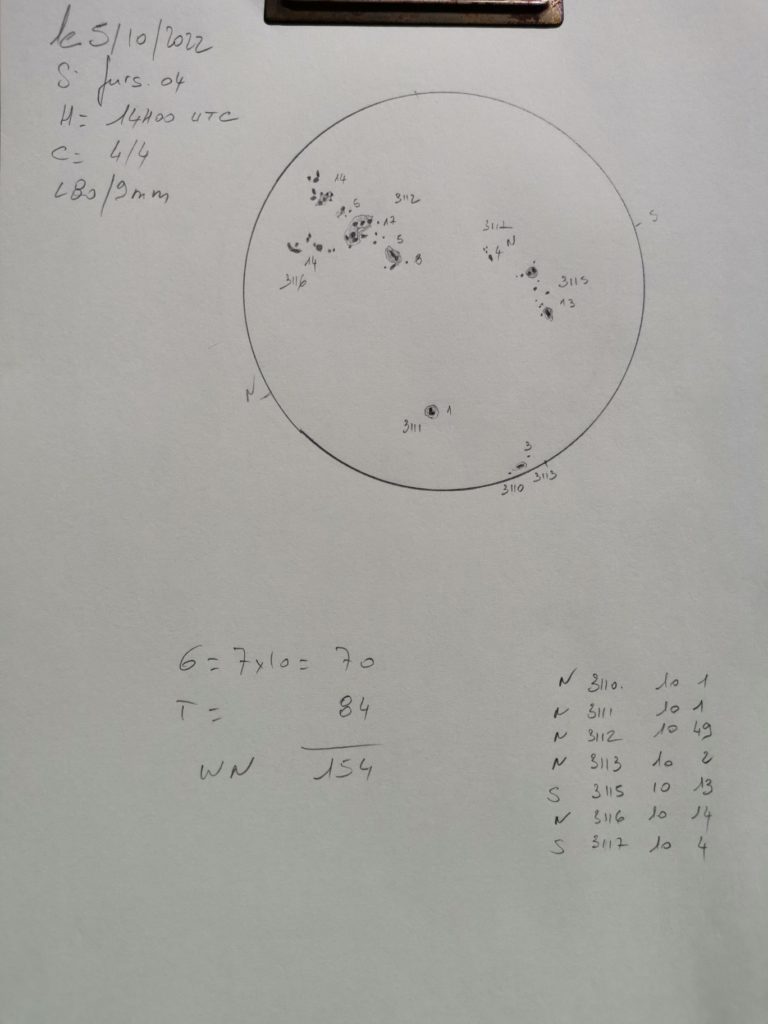 le 5/10/2022
S: furs. 04
H= 14H00 UTC
C= 4/4
L80/9mm
14
6
3112
17
5
8
14
3116
3117
N
4
3115
13
S
N
1
3111
3
3110
3113
G = 7x10 = 70
T = 84
WN 154
N 3110. 10 1
N 3111 10 1
N 3112 10 49
N 3113 10 2
S 3115 10 13
N 3116 10 14
S 3117 10 4